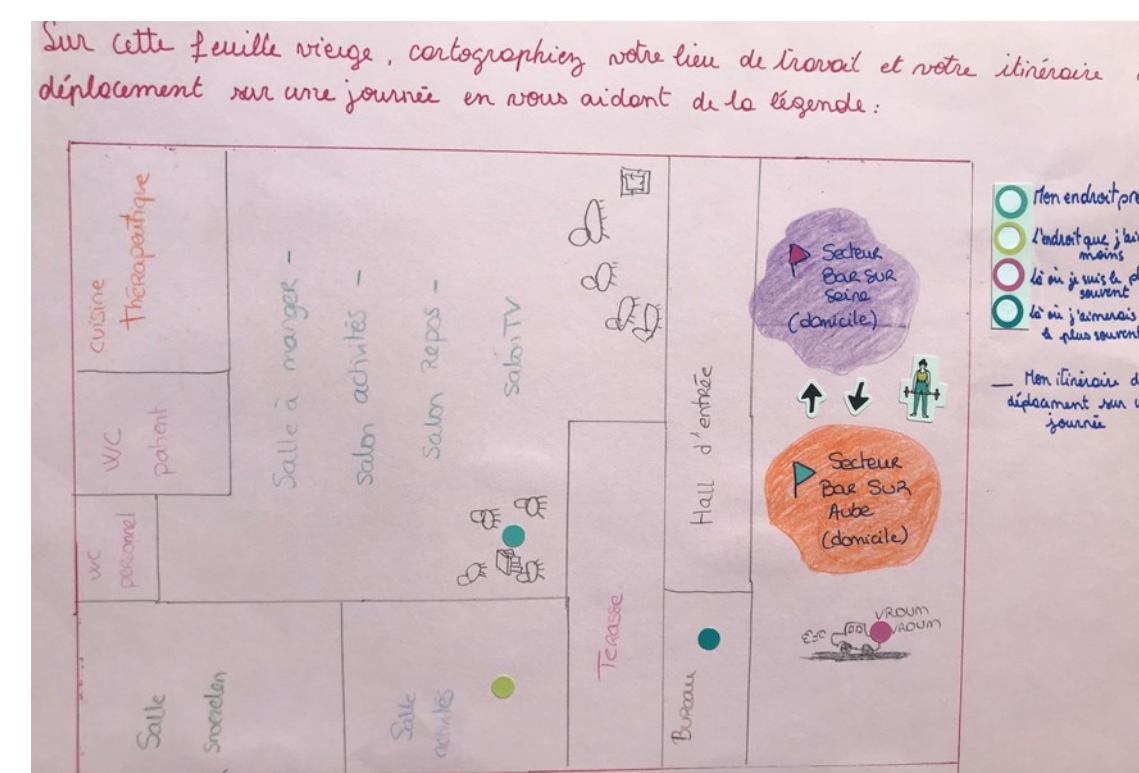 Sur cette feuille vierge, cartographiez votre lieu de travail et votre itinéraire
déplacement sur une journée en vous aidant de la légende:
cuisine
Thérapeutique
W/C
patient
WC
personnel
Salle à manger -
salon activités -
Salon Repos -
Salon TV
Salle
Snoezelen
Salle
activités
Terasse
Hall d'entrée
Bureau
Secteur
BAR SUR
Seine
(domicile)
Secteur
BAR SUR
Aube
(domicile)
VROUM
VROUM
Mon endroit
L'endroit que
moins
là où je suis le
souvent
là où j'aimerais
plus souvent
— Mon itinéraire
déplacement sur
journée